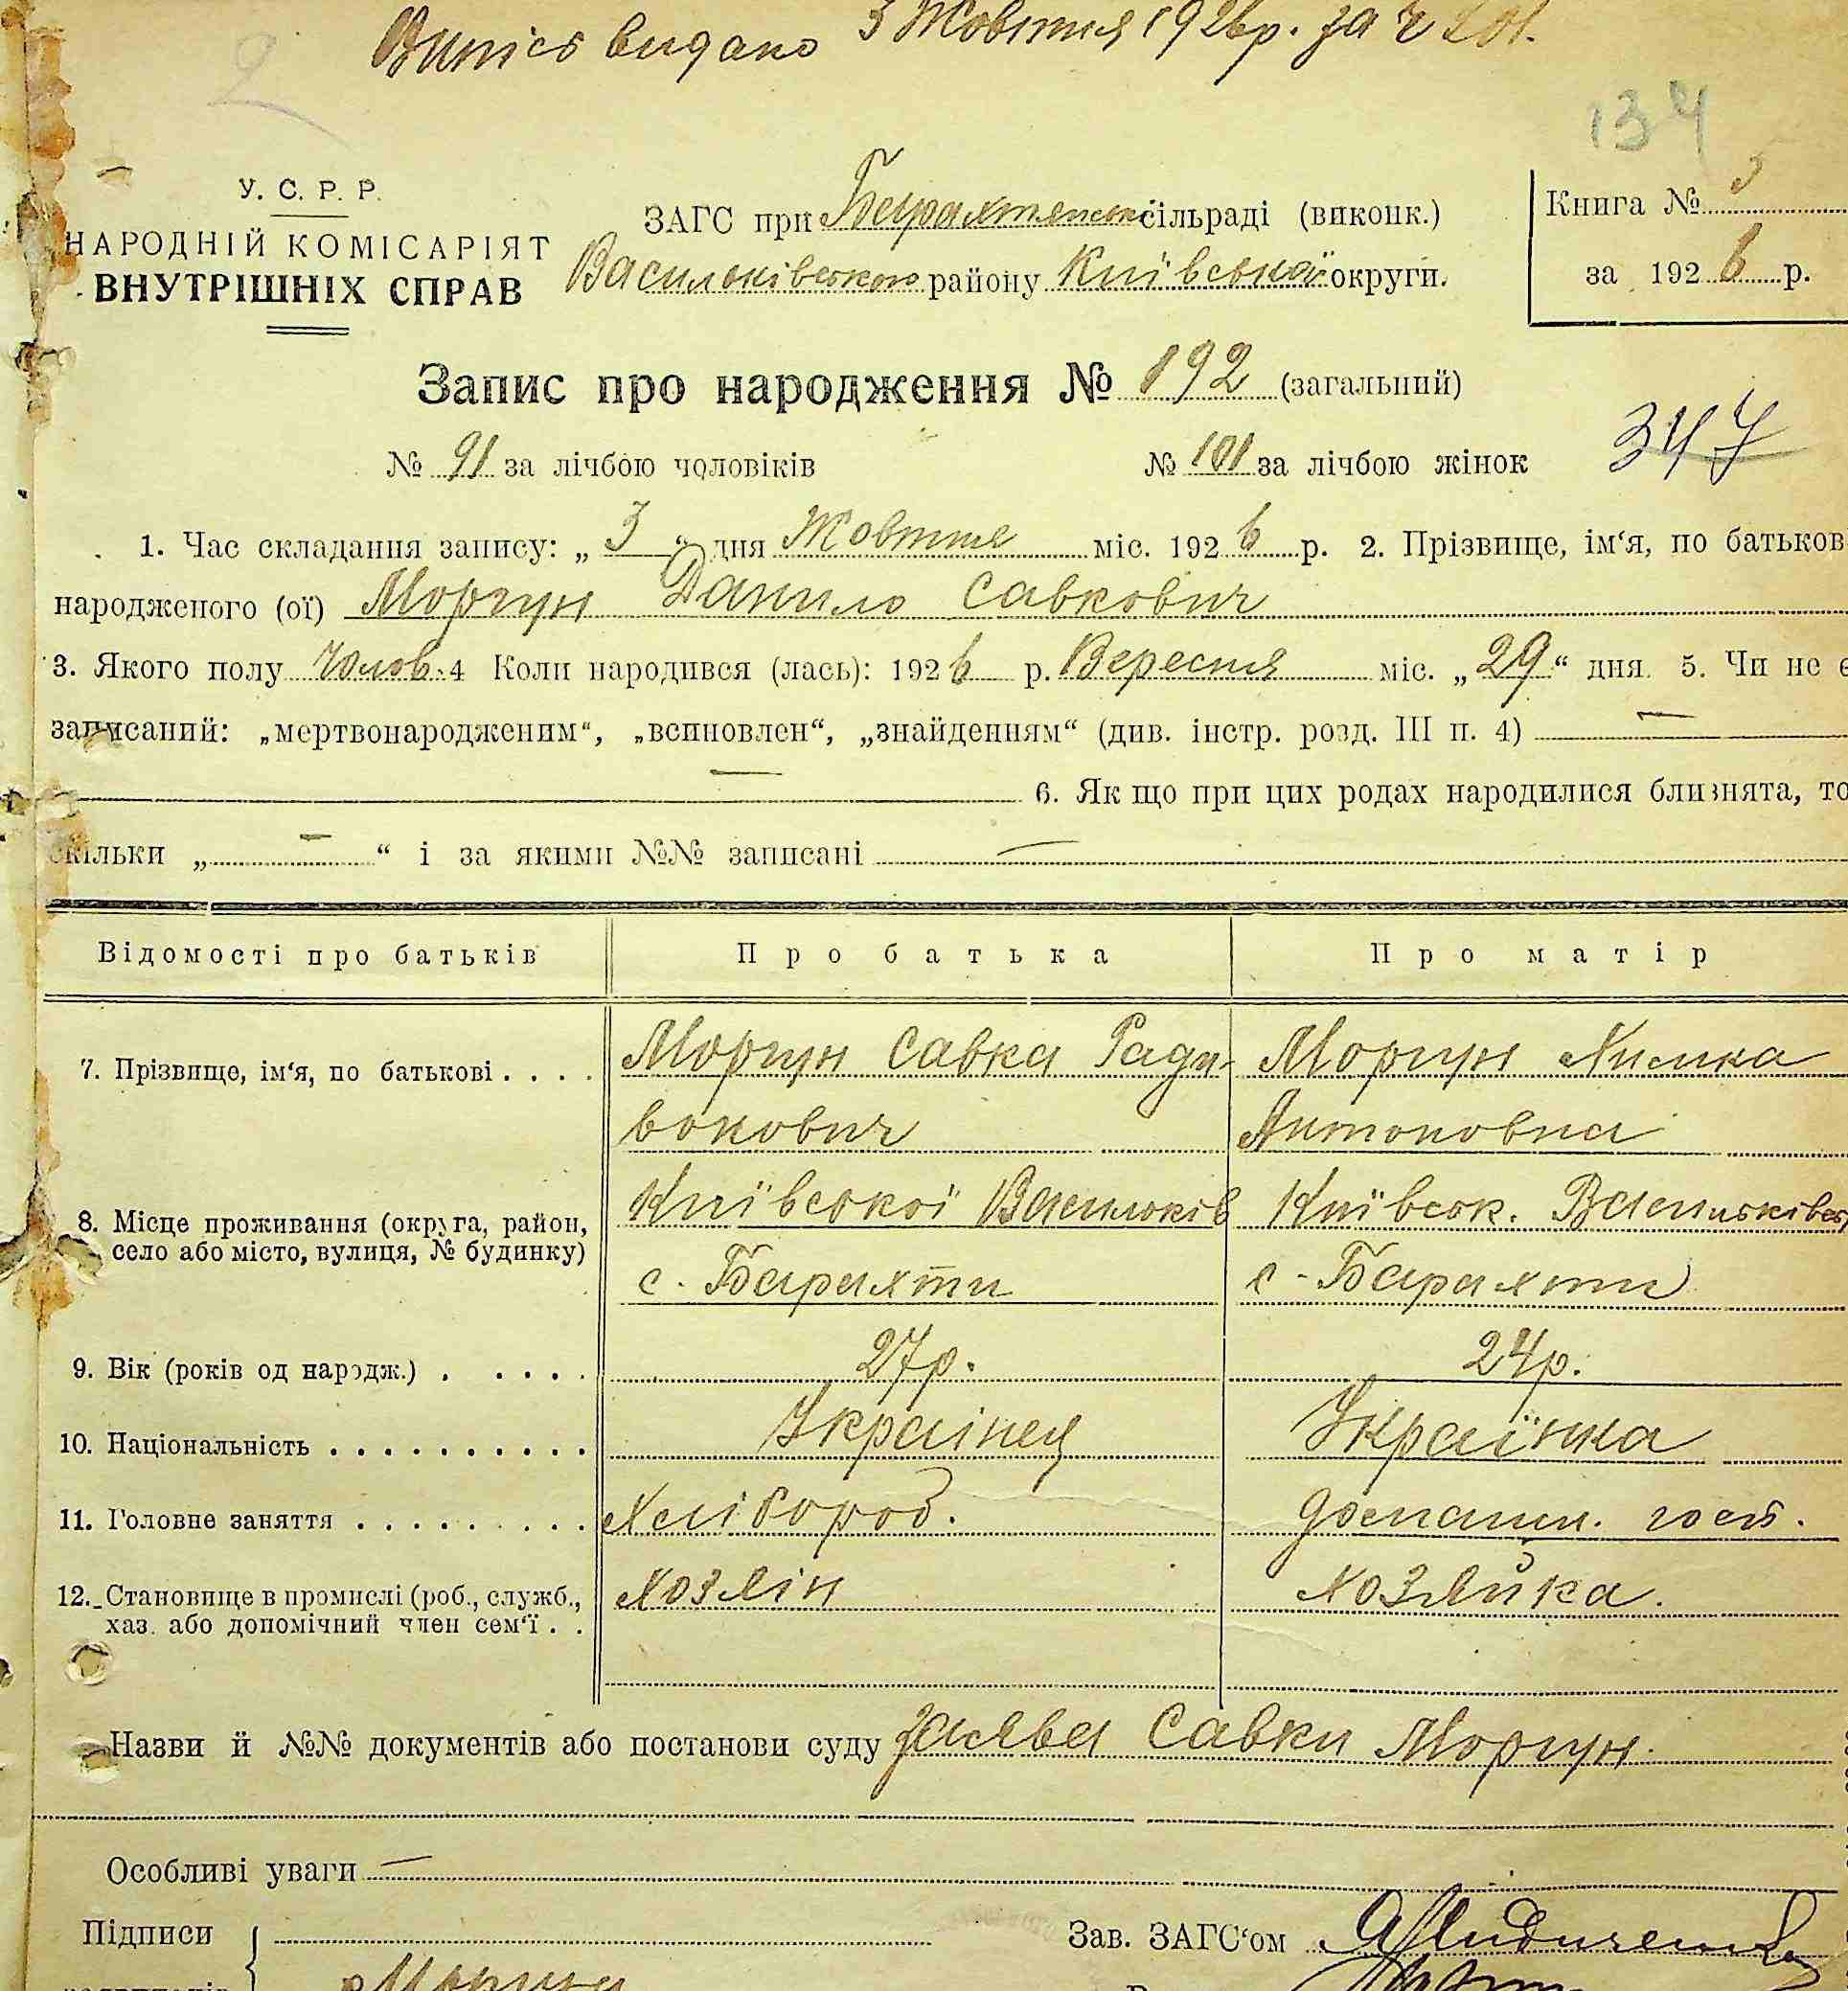 Випись видано 3 Жовтня 1926р. за № 201.
134
У. С. Р. Р.
НАРОДНІЙ КОМІСАРІЯТ
ВНУТРІШНІХ СПРАВ
ЗАГС при Барахтянськ сільраді (виконк.)
Васильківського району Київської округи.
Книга № 5
за 1926 р.
Запис про народження № 192 (загальний)
№ 91 за лічбою чоловіків № 101 за лічбою жінок 347
1. Час складання запису: „3“ дня Жовтня міс. 1926 р. 2. Прізвище, ім‘я, по батьков
народженого (ої) Моргун Данило Савкович
3. Якого полу чолов. 4 Коли народився (лась): 1926 р. Вересня міс. „29“ дня. 5. Чи не є
записаний: „мертвонародженим“, „всиновлен“, „знайденням“ (див. інстр. розд. III п. 4) —
— 6. Як що при цих родах народилися близнята, то
скільки „—“ і за якими №№ записані —
Відомості про батьків Про батька Про матір
7. Прізвище, ім‘я, по батькові . . . . Моргун Савка Ради- Моргун Химка
вонович Антоновна
8. Місце проживання (округа, район, Київської Васильків Київськ. Васильківськ
село або місто, вулиця, № будинку) с. Барахти с. Барахти
9. Вік (років од народж.) . . . . . 27р. 24р.
10. Національність . . . . . . . . . . Українец Українка
11. Головне заняття . . . . . . . . . Хлібороб. домашн. госп.
12. Становище в промислі (роб., служб., Хозяін Хозяйка.
хаз. або допомічний член сем‘ї . .
Назви й №№ документів або постанови суду заява Савки Моргун.
Особливі уваги —
Підписи Зав. ЗАГС‘ом
Моргун